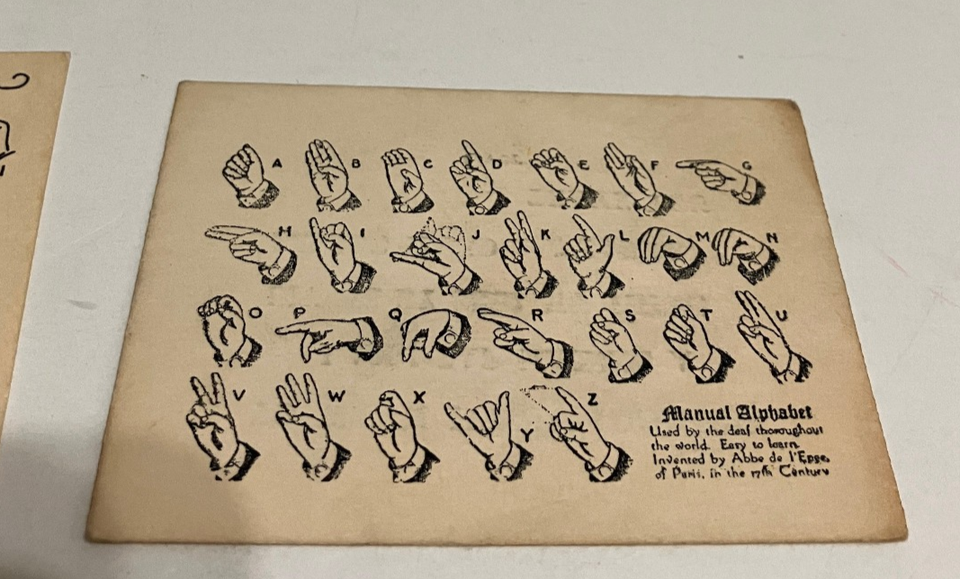 A B C D E F G
H I J K L M N
O P Q R S T U
V W X Y Z
Manual Alphabet
Used by the deaf thoroughout
the world. Easy to learn
Invented by Abbe de l'Epee,
of Paris, in the 17th Century